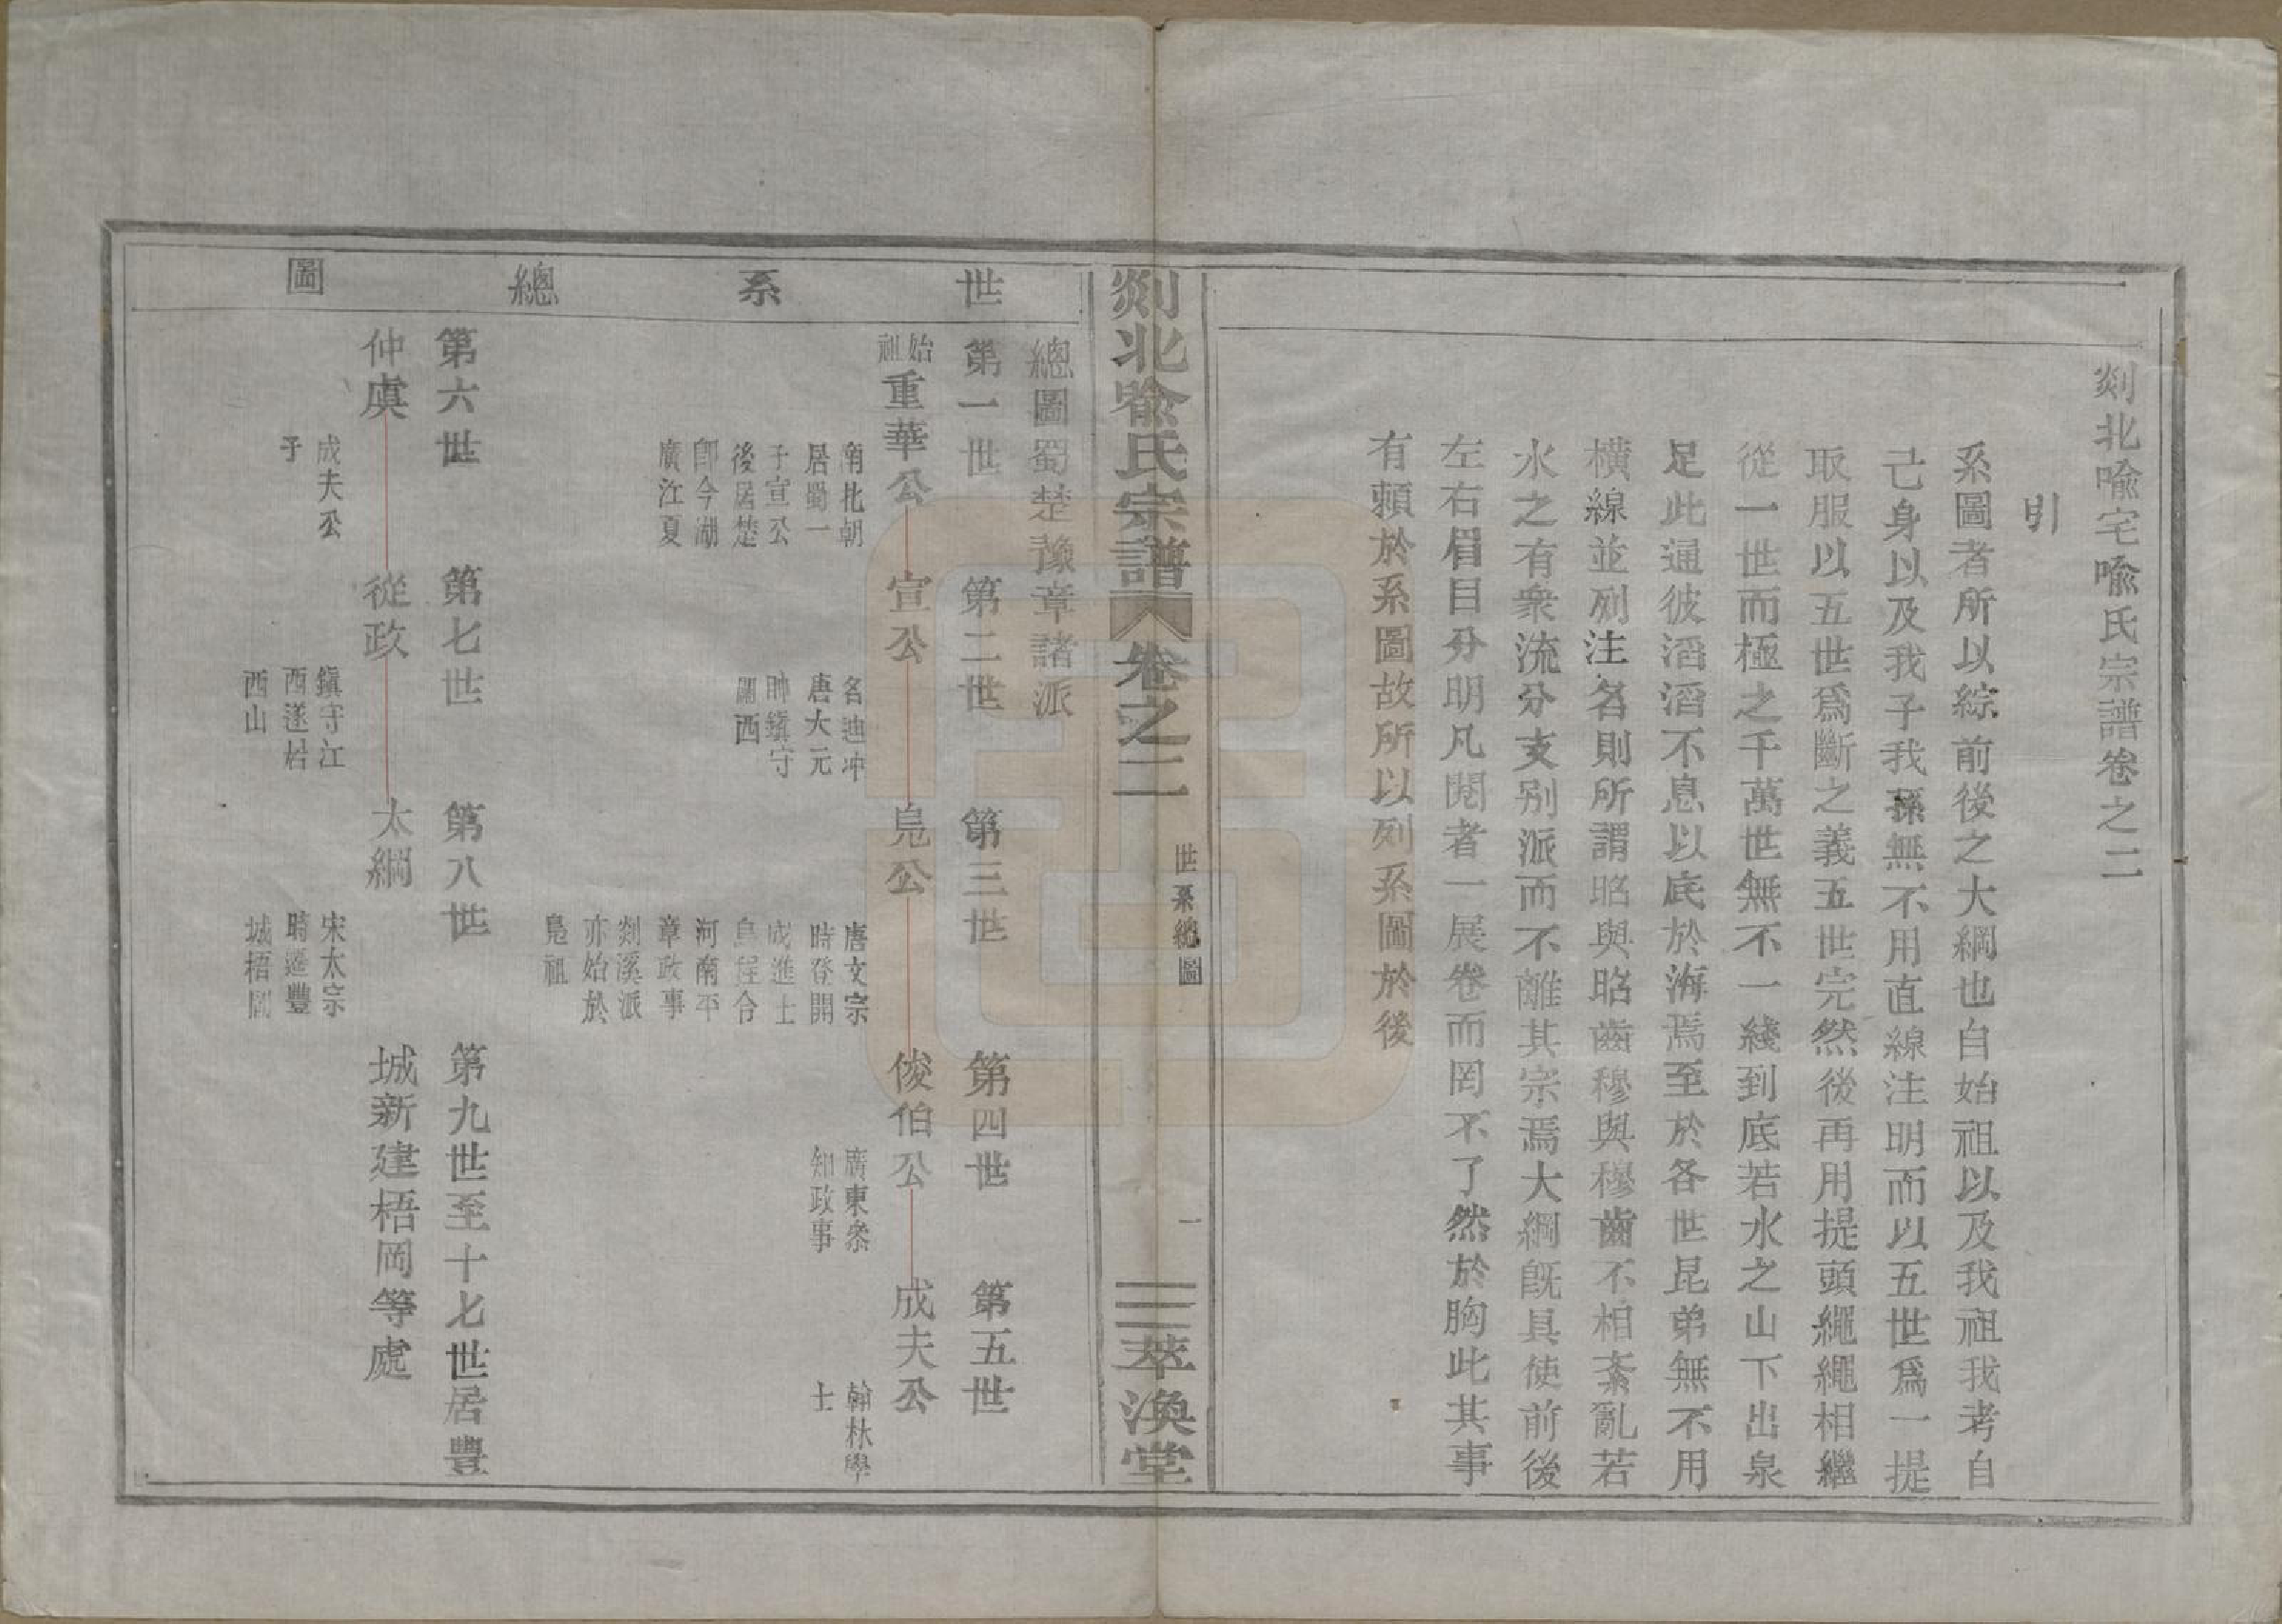 剡北喻宅喻氏宗譜卷之二
引
系圖者所以綜前後之大綱也自始祖以及我祖我考自
己身以及我子我孫無不用直線注明而以五世爲一提
取服以五世爲斷之義五世完然後再用提頭繩繩相繼
從一世而極之千萬世無不一綫到底若水之山下出泉
足此通彼滔滔不息以底於海焉至於各世昆弟無不用
橫線並列注名則所謂昭與昭齒穆與穆齒不相紊亂若
水之有衆流分支别派而不離其宗焉大綱旣具使前後
左右眉目分明凡閱者一展卷而罔不了然於胸此其事
有賴於系圖故所以列系圖於後
剡北喻氏宗譜 卷之二 世系總圖 一 萃渙堂
世系總圖
總圖蜀楚豫章諸派
第一世 第二世 第三世 第四世 第五世
始祖重華公 宣公 鳧公 俊伯公 成夫公
南北朝
居蜀一
子宣公
後居楚
卽今湖
廣江夏
名迪冲
唐大元
帥鎮守
關西
唐文宗
時登開
成進士
烏程令
河南平
章政事
剡溪派
亦始於
鳧祖
廣東叅
知政事
翰林學
士
第六世 第七世 第八世 第九世至十七世居豐
仲虞 從政 太綱 城新建梧岡等處
成夫公
子
鎮守江
西遂居
西山
宋太宗
時遷豐
城梧岡